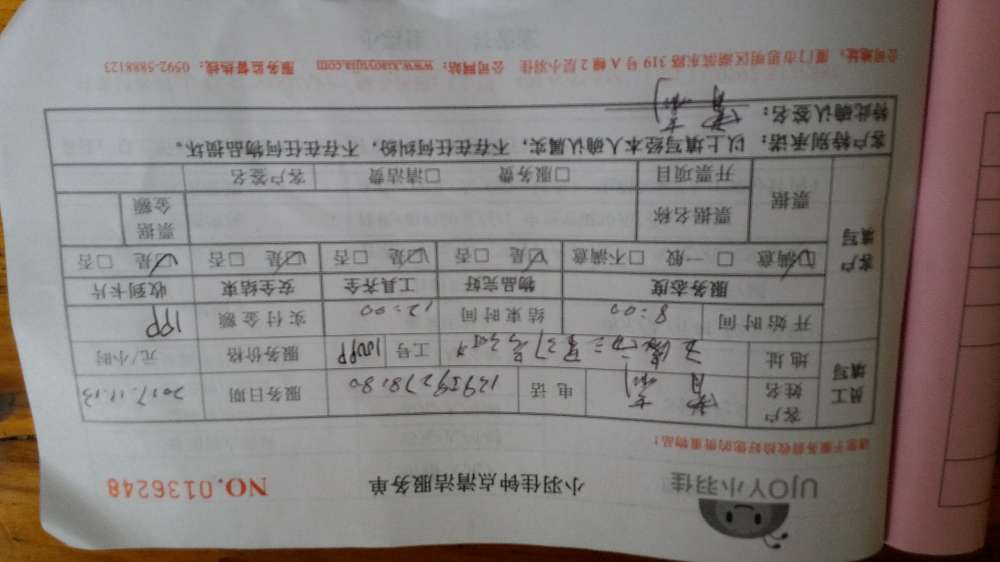 UJOY小羽佳
小羽佳钟点清洁服务单
NO.0136248
请您于服务前收拾您的贵重物品！
员工填写
客户姓名
电话
13959278180
服务日期
2017.11.13
地址
工号
服务价格
元/小时
开始时间
8:00
结束时间
12:00
实付金额
客户填写
服务态度
物品完好
工具齐全
安全结束
收到卡片
☑满意 □一般 □不满意
☑是 □否
☑是 □否
☑是 □否
☑是 □否
票据
票据名称
票据金额
开票项目
□服务费 □清洁费
客户签名
客户特别承诺：以上填写经本人确认属实，不存在任何纠纷，不存在任何物品损坏。
特此确认签名：
公司地址：厦门市思明区湖滨东路319号A幢2层小羽佳 公司网站：www.xiaoyujia.com 服务监督热线：0592-5888123